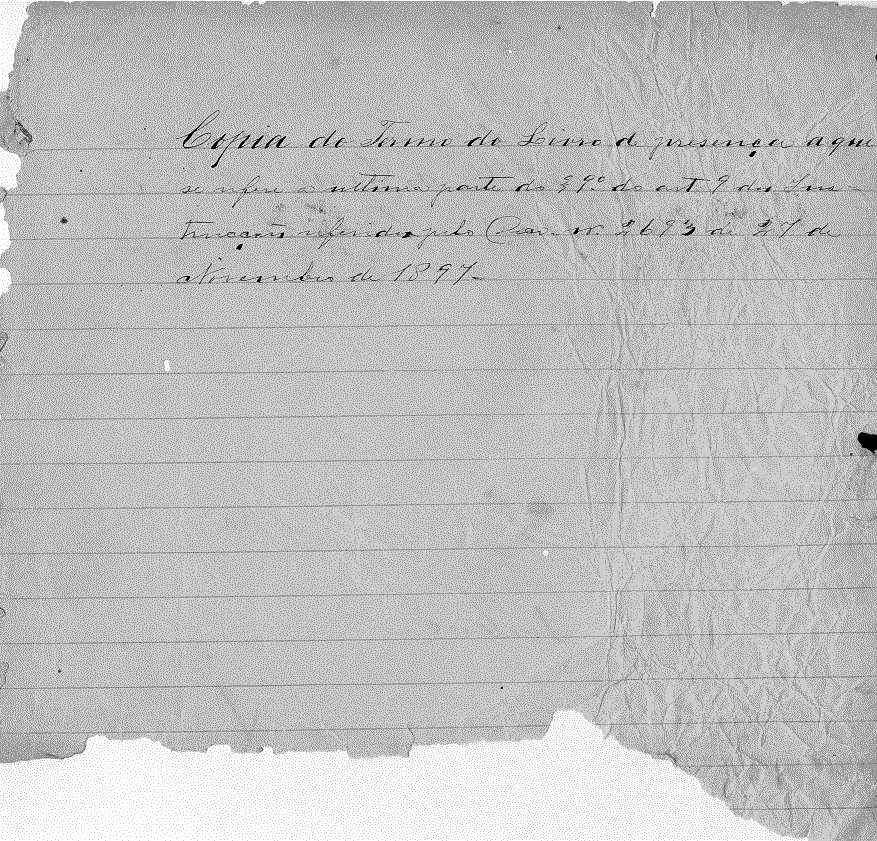 Copia do Termo do Livro d presença a que
se refere a ultima parte do § 9º do art 9 das Ins-
trucções referidas pelo Dec. n. 2693 de 27 de
Novembro de 1897